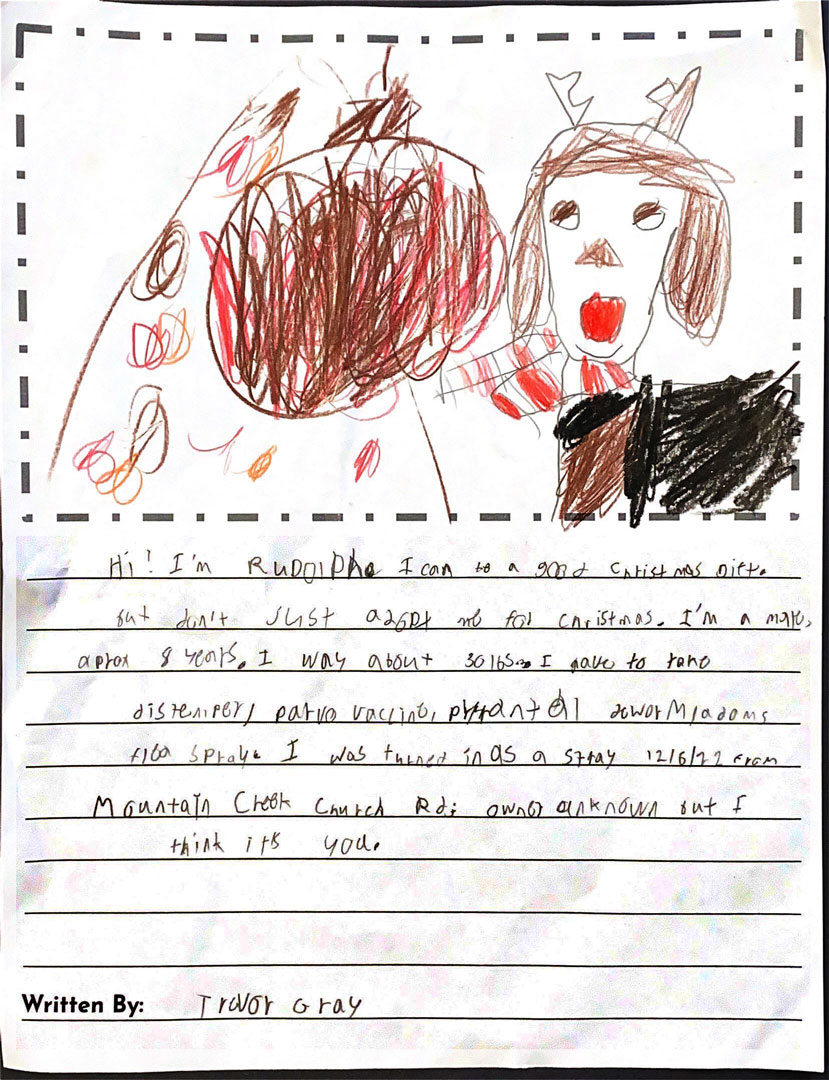 Hi! I'm Rudolph I can to a good Christmas Gift.
but don't Just adopt me for christmas. I'm a male,
aprox 8 years. I way about 30 lbs. I have to take
distemiper, parvo vaccine, pyrantal dewormladoms
flea spray. I was turned in as a stray 12/6/22 from
Mountain Creek Church Rd; owner unknown but I
think its you.
Written By: Trevor Gray